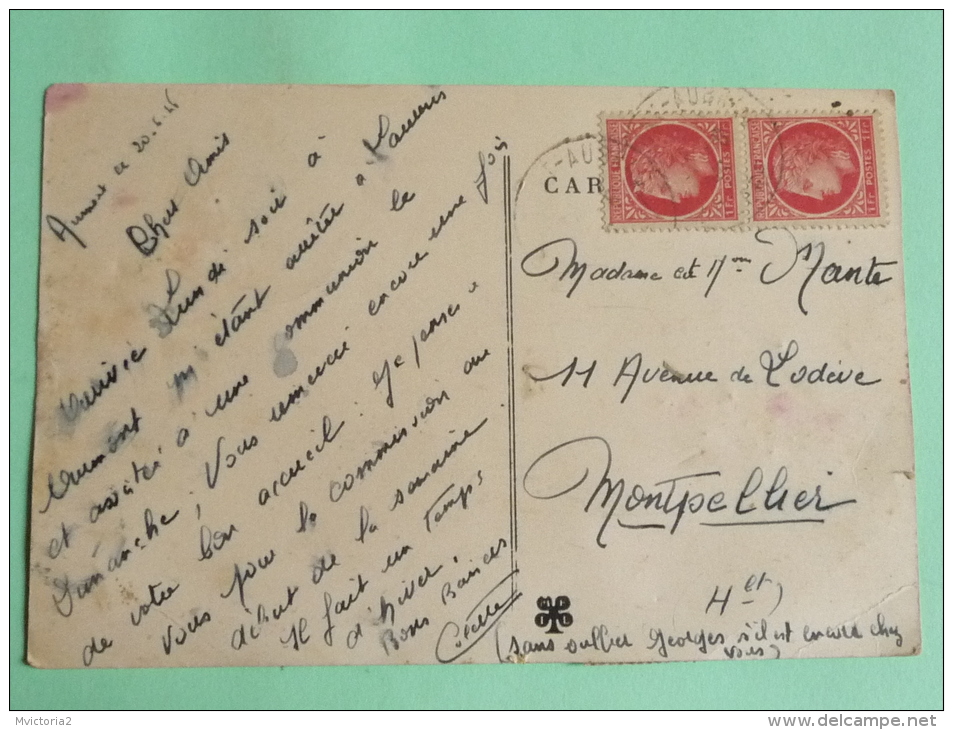 Aumont le 20.5.46
Chers Amis
Arrivée Lundi soir à
Aumont m'étant arrêtée à
et assisté à une communion le
Dimanche, Vous remercie encore une fois
de votre bon accueil. Je pense à
vous pour la commission au
début de la semaine.
Il fait un temps
d'hiver.
Bons Baisers
CAR
RÉPUBLIQUE FRANÇAISE
POSTES 1Fr
RÉPUBLIQUE FRANÇAISE
POSTES 1Fr
Madame et Mr Mante
11 Avenue de Lodève
Montpellier
Hlt)
(sans oublier Georges, s'il est encore chez
vous)
Mvictoria2
www.delcampe.net